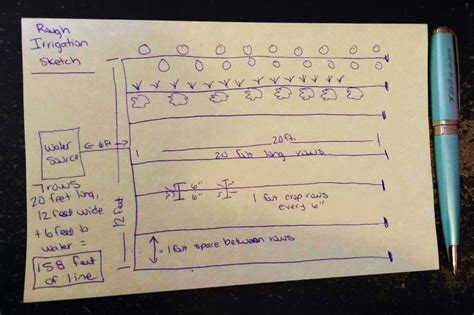 Rough
Irrigation
Sketch
water
source
6ft
12 feet
20ft.
20 foot long rows
6"
6"
1 foot crop rows
every 6"
1 foot space between rows
7 rows
20 feet long,
12 feet wide
+ 6 feet to
water =
158 feet
of line